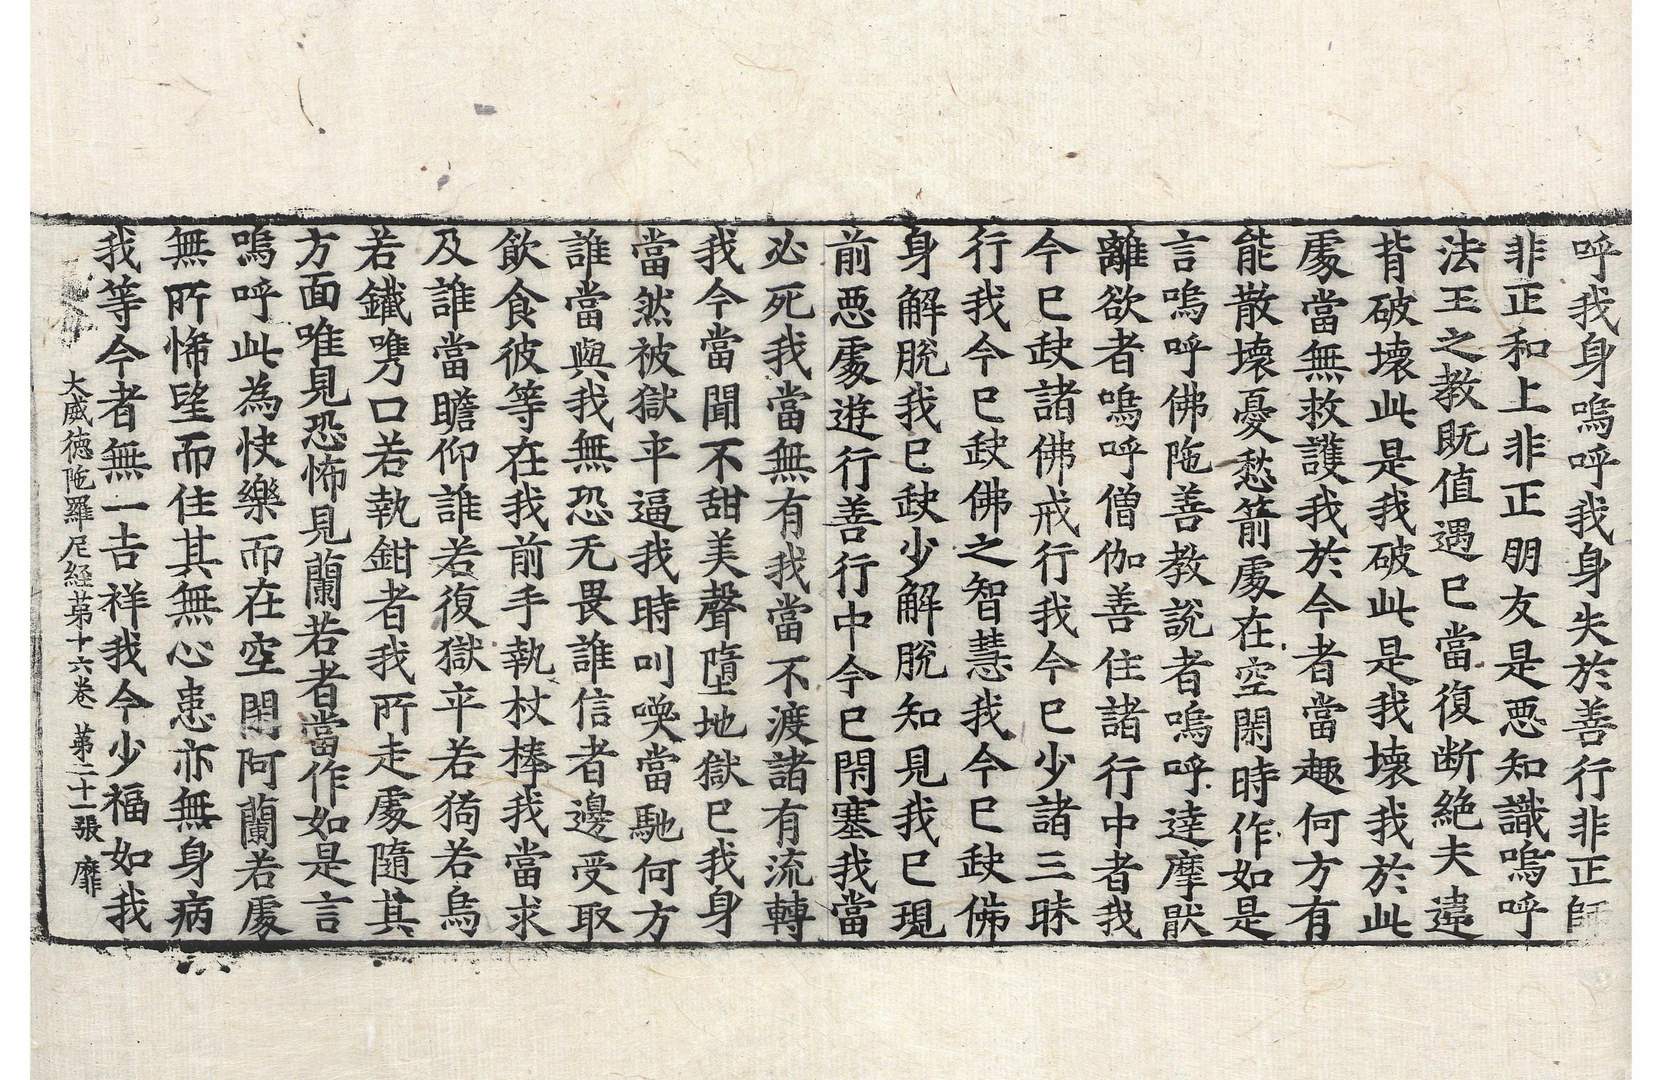 呼我身嗚呼我身失於善行非正師
非正和上非正朋友是惡知識嗚呼
法王之教既值遇已當復断絶夫違
背破壞此是我破此是我壞我於此
處當無救護我於今者當趣何方有
能散壞憂愁箭處在空閑時作如是
言嗚呼佛陁善教說者嗚呼達摩猒
離欲者嗚呼僧伽善住諸行中者我
今已缺諸佛戒行我今已少諸三昧
行我今已缺佛之智慧我今已缺佛
身解脫我已缺少解脫知見我已現
前惡處遊行善行中今已閇塞我當
必死我當無有我當不渡諸有流轉
我今當聞不甜美聲墮地獄已我身
當然被獄卒逼我時叫喚當馳何方
誰當與我無恐无畏誰信者邊受取
飲食彼等在我前手執杖棒我當求
及誰當瞻仰誰若復獄卒若猗若烏
若鐵㭰口若執鉗者我所走處隨其
方面唯見恐怖見蘭若者當作如是言
嗚呼此為快樂而在空閑阿蘭若處
無所悕望而住其無心患亦無身病
我等今者無一吉祥我今少福如我
大威德陁羅尼經苐十六卷 苐二十一張 靡